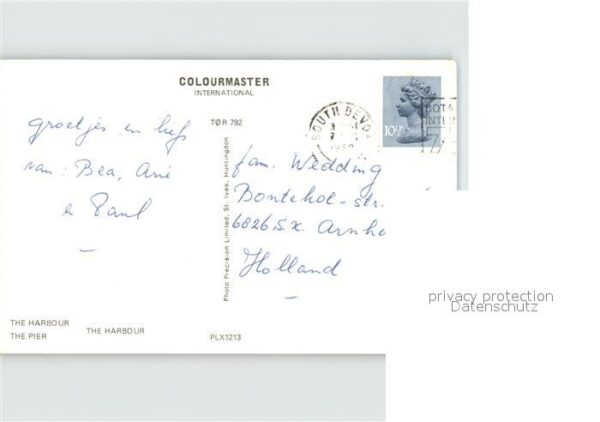 COLOURMASTER
INTERNATIONAL
TOR 792
SOUTH DEVO
10½P
groetjes en liefs
van: Bea, Arie
en Paul
Photo Precision Limited, St. Ives, Huntingdon
fam. Wedding
Bontekoe-str.
6826 S.X. Arnhe
Holland
privacy protection
Datenschutz
THE HARBOUR
THE PIER
THE HARBOUR
PLX1213